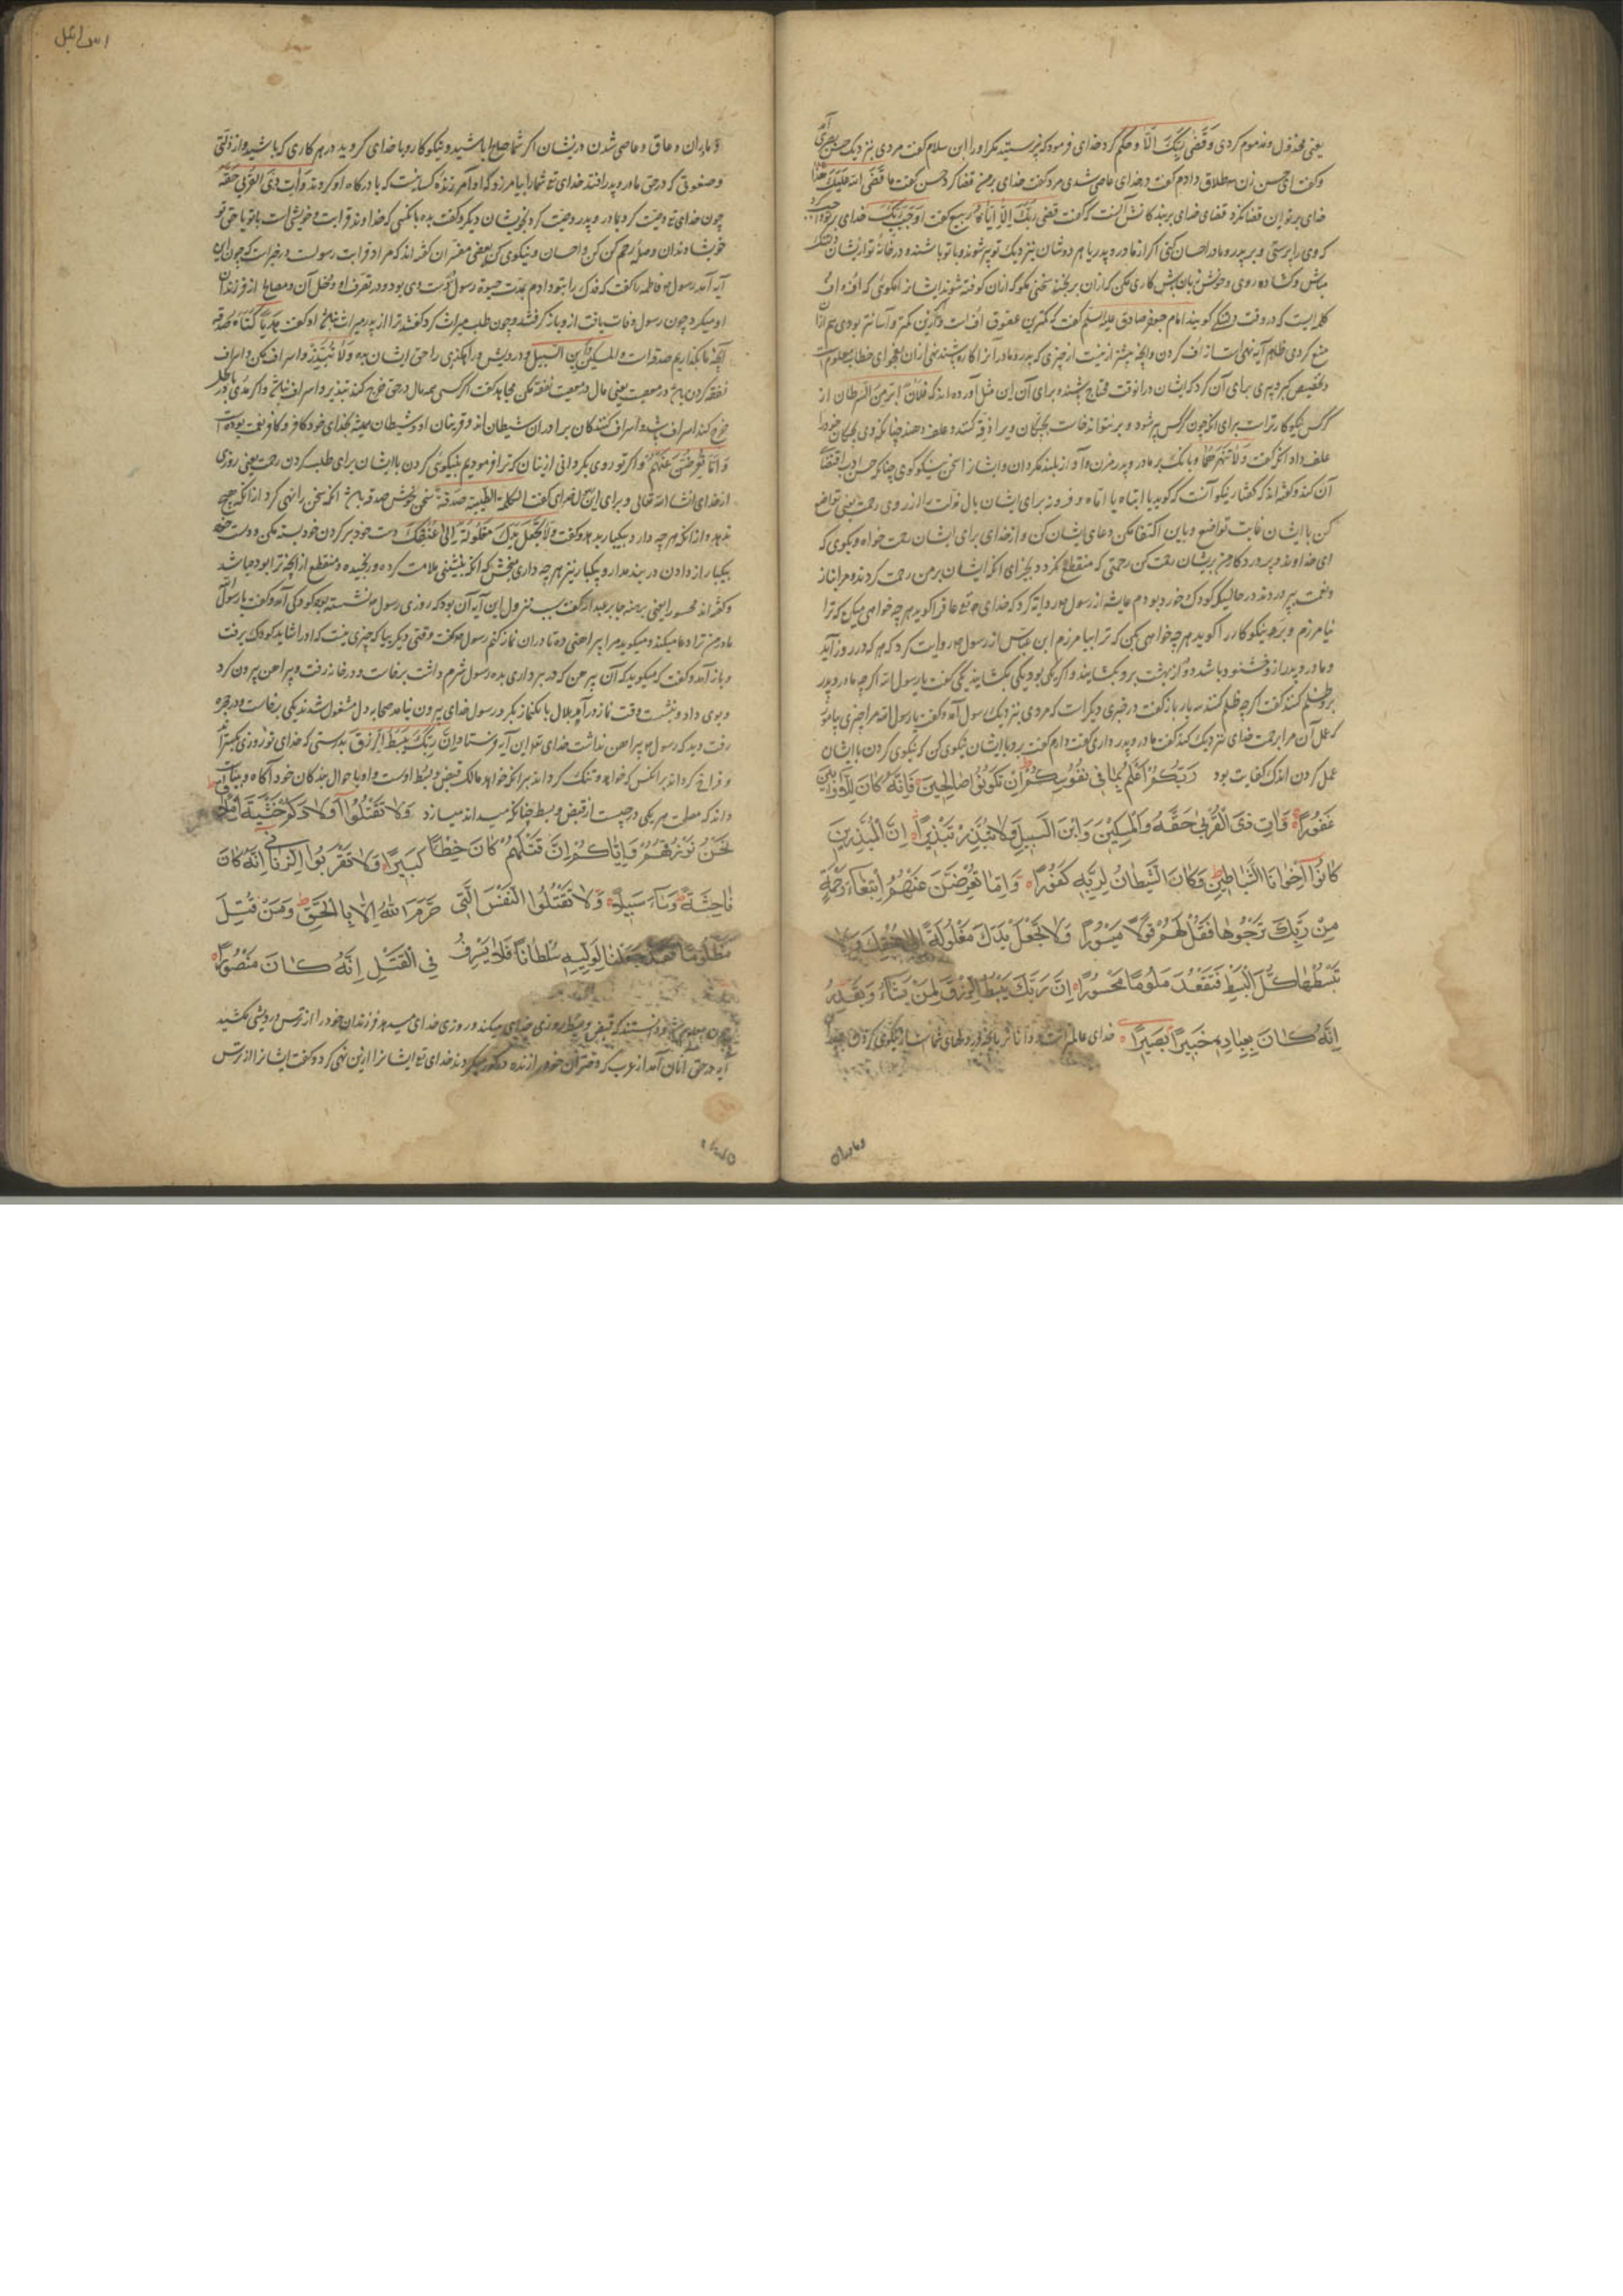 یعنی مخذول و مذموم کردی وَقَضٰی رَبُّکَ اَلَّا و حکم کرد خدای و فرمود که نپرستید مگر او را ابن سلام گفت مردی بنزدیک حسن بصری آمد
و گفت ای حسن زن سه طلاق دادم گفت در خدای عاصی شدی مرد گفت خدای بر من قضا کرد حسن گفت ما قَضَی الله عَلَیکَ هذا
خدای بر تو این قضا نکرد قضای خدای بر بندکانش آنست که گفت قضی ربک الا ایاه ربیع گفت اوجب ربک خدای بر تو واجب کرد
که وی را پرستی و بر پدر و مادر احسان کنی اگر از مادر و پدر یا هر دوشان بنزدیک تو پیر شوند و با تو باشند و در خانه تو از ایشان
مباش و گشاده روی و خوش زبان باش
کلمه ایست که در وقت گویند امام جعفر صادق علیه السلم گفت که کمترین عقوق اف است و اگر ازین کمتر و آسانتر بودی هم از آن
منع کردی ظاهر آیه نهی است از اف کردن و آنچه بیشتر ازینست از چیزی که پدر و مادر از آن کاره باشند
و تخصیص کبر و پیری برای آن کرد که ایشان در آن وقت محتاج باشند و برای آن این مثل آورده اند که فلان ابر من النسر
کرکس نیکوکارترست برای آنکه چون کرکس پیر شود و بر نتواند خاست بچگان ویرا زقه کنند و علف دهند چنانکه وی بچکان خود را
علف داد آنکه گفت وَلَا تَنْهَرْهُمَا و بانک بر مادر و پدر مزن و آواز بلند مکردان و ایشانرا سخن نیکو گوی چنانکه حسن ادب اقتضا
آن کند و گفته اند که گفتار نیکو آنست که گوید یا ابتاه یا اماه و فرو نه برای ایشان بال مذلت را از روی رحمت یعنی تواضع
کن با ایشان غایت تواضع و باین اکتفا مکن و دعای ایشان کن و از خدای برای ایشان رحمت خواه و بگوی که
ای خداوند و پروردکار من بریشان رحمت کن رحمتی که منقطع نکردد بجزای آنکه ایشان بر من رحمت کردند و مرا بناز
و نعمت بپروردند در حالیکه کودک خورد بودم عایشه از رسول روایة کرد که خدای تع عاق را کوید هر چه خواهی میکن که ترا
نیامرزم و بره نیکوکار را کوید هر چه خواهی بکن که ترا بیامرزم ابن عباس از رسول روایت کرد که هر که در روز آید
و مادر و پدر ازو خشنود باشد دو در از بهشت برو بکشایند و اگر یکی بود یکی بکشایند یکی گفت یا رسول الله اگر چه مادر و پدر
برو ظلم کنند گفت اگر چه ظلم کنند سه بار باز گفت در خبری دیگر است که مردی بنزدیک رسول آمد و گفت یا رسول الله مرا چیزی بیاموز
که عمل آن مرا برحمت خدای نزدیک کند گفت مادر و پدر داری گفت دارم گفت برو با ایشان نیکوی کن که نیکوی کردن با ایشان
عمل کردن اندک کفایت بود رَبُّکُمْ اَعْلَمُ بِمَا فِی نُفُوسِکُمْ اِنْ تَکُونُوا صَالِحِینَ فَاِنَّهُ کَانَ لِلْاَوَّابِینَ
غَفُورًا وَاٰتِ ذَی الْقُرْبٰی حَقَّهُ وَالْمِسْکِینَ وَابْنَ السَّبِیلِ وَلَا تُبَذِّرْ تَبْذِیرًا اِنَّ الْمُبَذِّرِینَ
کَانُوٓا اِخْوَانَ الشَّیَاطِینِ وَکَانَ الشَّیْطَانُ لِرَبِّهِ کَفُورًا وَاِمَّا تُعْرِضَنَّ عَنْهُمُ ابْتِغَآءَ رَحْمَةٍ
مِنْ رَبِّکَ تَرْجُوهَا فَقُلْ لَهُمْ قَوْلًا مَیْسُورًا وَلَا تَجْعَلْ یَدَکَ مَغْلُولَةً اِلٰی عُنُقِکَ وَلَا
تَبْسُطْهَا کُلَّ الْبَسْطِ فَتَقْعُدَ مَلُومًا مَحْسُورًا اِنَّ رَبَّکَ یَبْسُطُ الرِّزْقَ لِمَنْ یَشَآءُ وَیَقْدِرُ
اِنَّهُ کَانَ بِعِبَادِهِ خَبِیرًا بَصِیرًا خدای عالم تر است و داناتر بآنچه در دلهای شماست از نیکوی کردن
و مادران
اسرائیل
و مادران و عاق و عاصی شدن دریشان اگر شما صالح باشید و نیکوکار و با خدای کروید در هر کاری که باشید و از زلتی
و صفوتی که در حق مادر و پدر افتد خدای تع شما را بیامرزد که او آمرزنده کسانیست که با درکاه او کروند وَآتِ ذَی القُربی حَقَّه
چون خدای تع وصیت کرد بمادر و پدر وصیت کرد بخویشان دیگر و گفت بده
خویشاوندان و صله رحم کن و احسان و نیکوی کن بعضی مفسران گفته اند که مراد قرابت رسولست در خبر است که چون این
آیه آمد رسول فاطمه را گفت که فدک را بتو دادم بمدت حیوة رسول در دست وی بود و در تصرف او
او میکرد چون رسول وفات یافت ازو باز گرفتند و چون طلب میراث کرد گفتند ترا از پدر میراث
آنچه ما بگذاریم صدقه است والمسکین وابن السبیل و درویش و راهگذری را حق ایشان بده وَلَا تُبَذِّرْ و اسراف مکن و اسراف
نفقه کردن باشد در معصیت یعنی مال در معصیت نفقه مکن مجاهد گفت اگر کسی همه مال در حق خرج کند تبذیر و اسراف نباشد و اگر مدی در باطل
خرج کند اسراف باشد و اسراف کنندکان برادران شیطان اند و قرینان او و شیطان همیشه بخدای خود کافر و کافر نعمت بوده است
وَاِمَّا تُعْرِضَنَّ عَنْهُمُ و اگر تو روی بگردانی ازینان که ترا فرمودیم بنیکوی کردن با ایشان برای طلب کردن رحمت یعنی روزی
از خدای انشا الله تعالی و برای این گفت الکلمة الطیبة صدقة سخن خوش صدقه باشد آنکه سخن را نهی کرد از آنکه هیچ
ندهد و از آنکه هر چه دارد بیکبار بدهد و گفت وَلَا تَجْعَلْ یَدَکَ مَغْلُولَةً اِلٰی عُنُقِکَ دست خود بر کردن خود بسته مکن و دست خود
بیکبار از دادن در بند مدار و بیکبار نیز هر چه داری مبخش که آنکه بنشینی ملامت کرده و رنجیده و منقطع از آنچه ترا بود
و گفته اند محسورا یعنی برهنه جابر عبدالله گفت سبب نزول این آیه آن بود که روزی رسول نشسته بود کودکی آمد و گفت یا رسول الله
مادر من ترا دعا میکند و میگوید مرا پیراهنی ده تا در آن نماز کنم رسول گفت وقتی دیگر بیا که چیزی نیست که او را شاید کودک برفت
و باز آمد و گفت که میگوید که آن پیرهن که در بر داری بده رسول شرم داشت برخاست و در خانه رفت و پیراهن بیرون کرد
و بوی داد و بنشست وقت نماز درآمد بلال بانک نماز بکرد رسول خدای بیرون نیامد صحابه دل مشغول شدند یکی برخاست و در حجره
رفت دید که رسول پیراهن نداشت خدای تع این آیه فرستاد اِنَّ رَبَّکَ یَبْسُطُ الرِّزْقَ بدرستی که خدای تو روزی میکستراند
و فراخ کرداند بر آنکس که خواهد و تنک کرداند بر آنکه خواهد مالک قبض و بسط اوست و او باحوال بندکان خود آگاه و بیناست
داند که مصلحت هر یکی در چیست از قبض و بسط چنانکه میداند میسازد وَلَا تَقْتُلُوٓا اَوْلَادَکُمْ خَشْیَةَ اِمْلَاقٍ
نَحْنُ نَرْزُقُهُمْ وَاِیَّاکُمْ اِنَّ قَتْلَهُمْ کَانَ خِطْئًا کَبِیرًا وَلَا تَقْرَبُوا الزِّنٰی اِنَّهُ کَانَ
فَاحِشَةً وَسَآءَ سَبِیلًا وَلَا تَقْتُلُوا النَّفْسَ الَّتِی حَرَّمَ اللهُ اِلَّا بِالْحَقِّ وَمَنْ قُتِلَ
مَظْلُومًا فَقَدْ جَعَلْنَا لِوَلِیِّهِ سُلْطَانًا فَلَا یُسْرِفْ فِی الْقَتْلِ اِنَّهُ کَانَ مَنْصُورًا
چون معلوم شد و دانستند که قبض و بسط روزی خدای میکند و روزی خدای میدهد فرزندان خود را از ترس درویشی مکشید
آیه در حق آنان آمد از عرب که دختران خود را زنده در کور میکردند خدای تع ایشانرا ازین نهی کرد و گفت ایشانرا از ترس